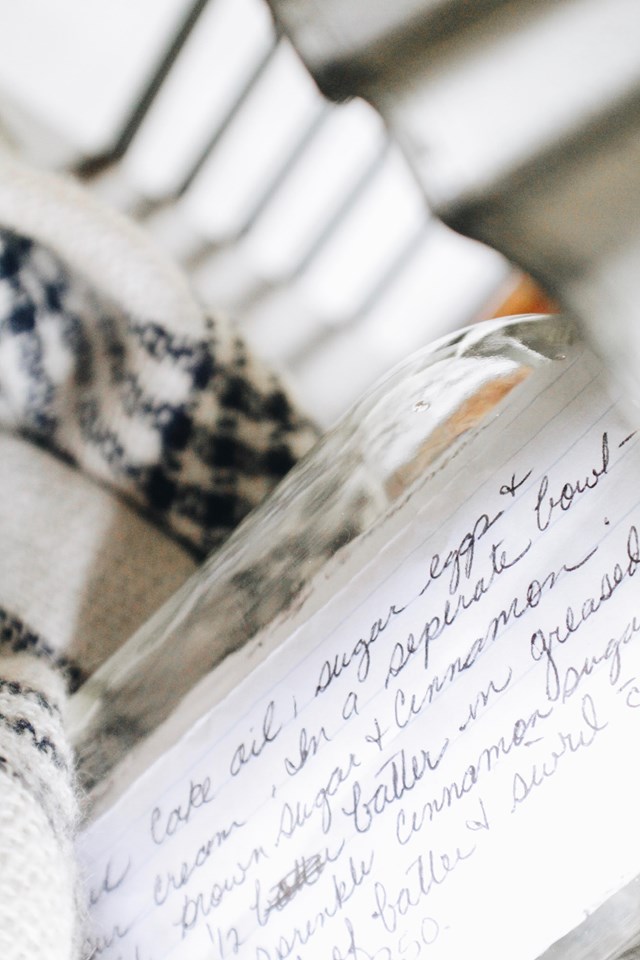 cake oil, sugar eggs &
cream. In a seperate bowl -
brown sugar & cinnamon.
1/2 batter in greased
sprinkle cinnamon sugar
of batter & swirl
350.